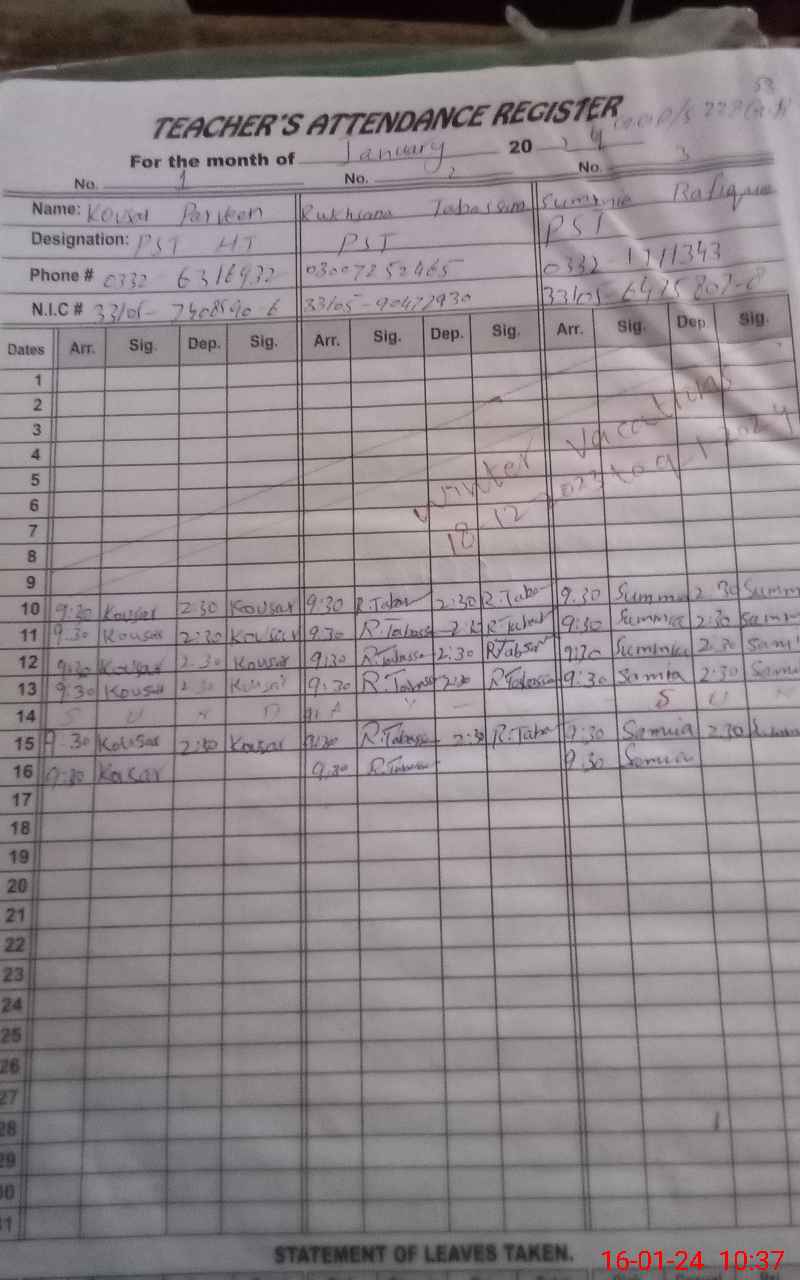 53
TEACHER'S ATTENDANCE REGISTER
For the month of January 2024
No. 1 No. 2 No. 3
Name: Kousar Parveen Rukhsana Tabassam Summia Rafique
Designation: PST HT PST PST
Phone # 0332 6316932 03007252465 0332-1711343
N.I.C # 33105- 7408590-6 33105-90477930 33105-6475807-8
Dates Arr. Sig. Dep. Sig. Arr. Sig. Dep. Sig. Arr. Sig. Dep. Sig.
1
2
3
4
winter vacations
5
18-12-2023 to 9-1-2024
6
7
8
9
10 9:30 Kousar 2:30 Kousar 9:30 R.Tabas 2:30 R.Taba 9.30 Summia 2.30 Summ
11 9.30 Kousar 2:30 Kousar 9.30 R.Tabassa 2:30 9:30 Summia 2:30 Samm
12 9:30 Kousar 2.30 Kousar 9:30 R.Tabassa 2:30 RTabsar 9:30 Summia 2:30 Sami
13 9:30 Kousar 2:30 Kousar 9:30 R.Tabass 2:30 R.Tabassa 9:30 Samia 2:30 Samia
14 S U N D A Y - S U N
15 9.30 Kousar 2:30 Kousar 9:30 R.Tabassa 2:30 R.Taba 9:30 Samia 2:30
16 9:30 Kousar 9.30 9.30 Samia
17
18
19
20
21
22
23
24
25
26
27
28
29
30
31
STATEMENT OF LEAVES TAKEN.
16-01-24 10:37